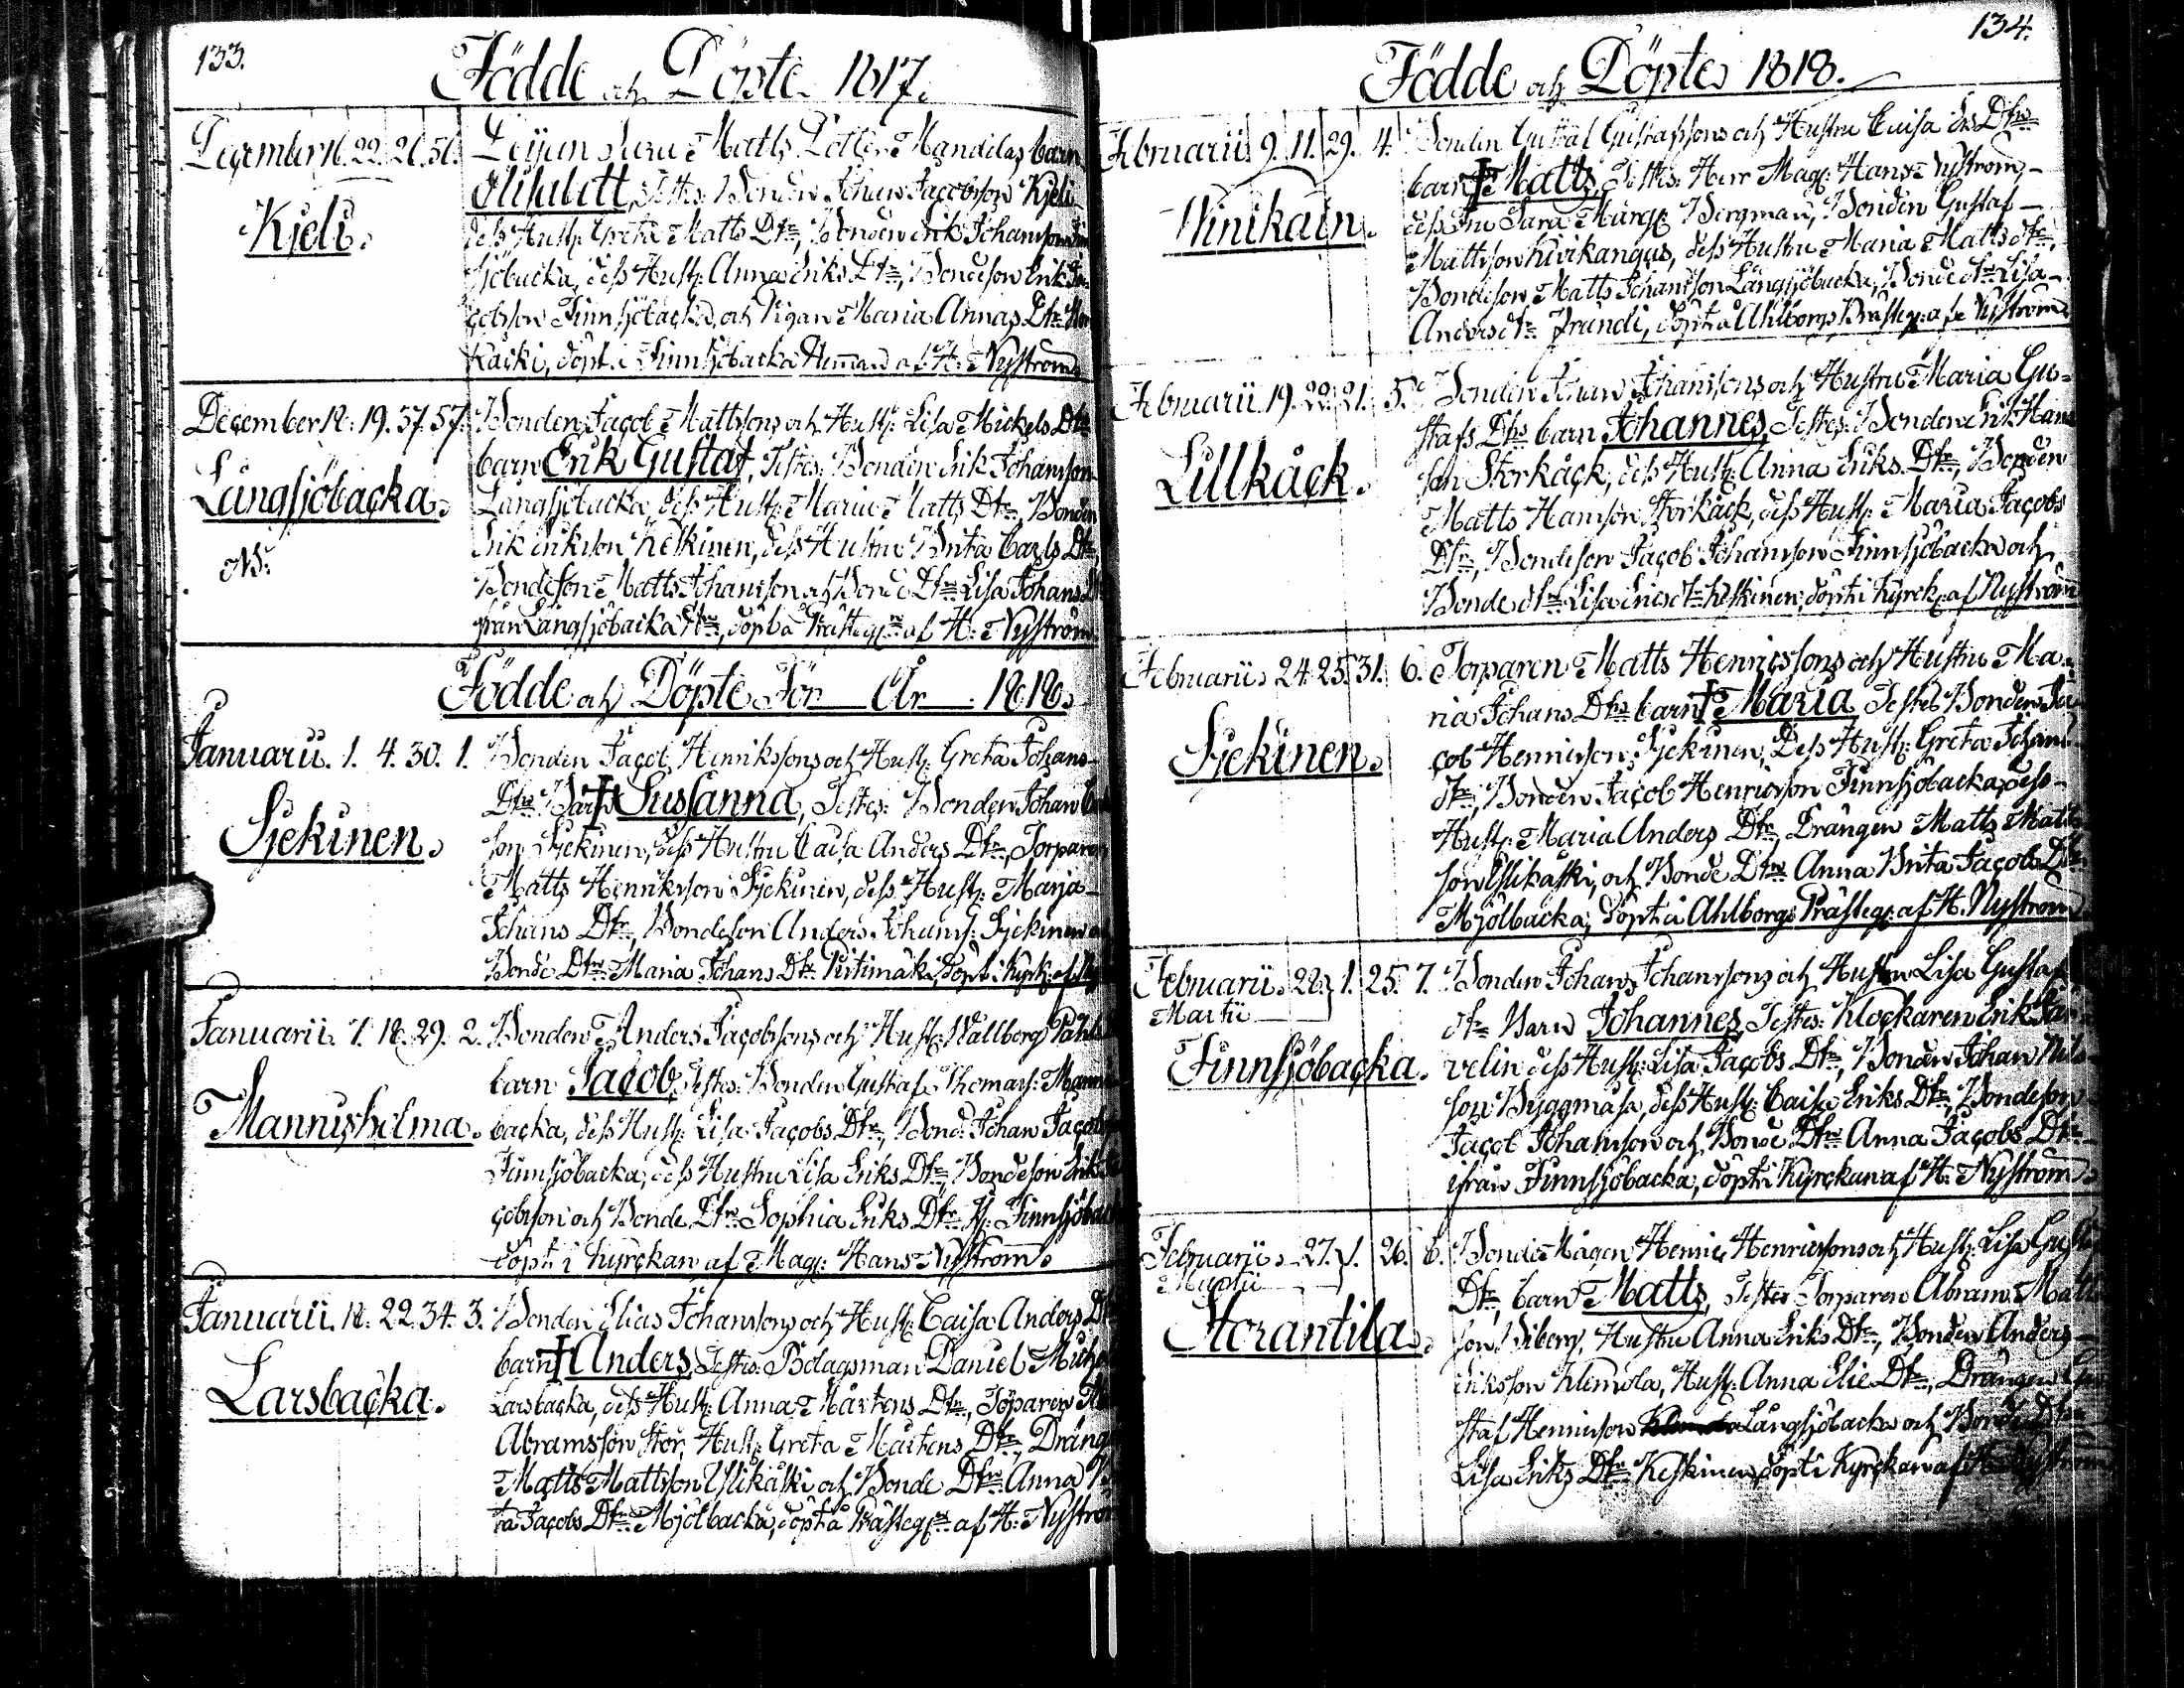 133.
Födde och Döpte 1817.
December 16. 22. 26. 56. Matts Dotter Mandelas barn
Kjeli.
Testes: Bonden Johan Jacobsson Kjeli
dess Hust: Greta Matts Dtr, Bonden Erik Johansson
sjöbacka, dess Hust: Anna Eriks Dtr, Bondeson Erik Ja
cobsson Finnsjöbacka, och Pigan Maria Annas Dtr
Kacki, döpt i Finnsjöbacka Hemman af H: Nyström.
December 18. 19. 37. 57. Bonden Jacob Mattssons och Hust: Lisa Mickels Dtr
Långsjöbacka.
barn Erik Gustaf, Testes: Bonden Erik Johansson
Långsjöbacka, dess Hust: Maria Matts Dtr, Bonden
Erik Eriksson Keskinen, dess Hustru Brita Carls Dtr,
Bondeson Matts Johansson och Bonde Dtr Lisa Johans
från Långsjöbacka, döpt å Prästeg: af H: Nyström.
Födde och Döpte För År 1818.
Januarii. 1. 4. 30. 1. Bonden Jacob Henrikssons och Hust: Greta Johans
Sjekinen.
Dtrs Barn † Sussanna, Testes: Bonden Johan
son Sjekinen, dess Hustru Caisa Anders Dtr, Torparen
Matts Henriksson Sjekinen, dess Hust: Marja
Johans Dtr, Bondeson Anders Johans: Sjekinen
Bonde Dtr Maria Johans Dtr Pirtimäki, döpt i Kyrk:
Januarii. 7. 18. 29. 2. Bonden Anders Jacobssons och Hust: Wallborg
Mannisholma.
barn Jacob, Testes: Bonden Gustaf Thomass:
backa, dess Hust: Lisa Jacobs Dtr, Bond: Johan Jacobs
Finnsjöbacka, dess Hustru Lisa Eriks Dtr, Bondeson Erik
cobsson och Bonde Dtr Sophia Eriks Dtr Finnsjöbacka
döpt i Kyrckan af Mag: Hans Nyström.
Januarii. 18. 22. 34. 3. Bonden Elias Johanssons och Hust: Caisa Anders Dtr
Larsbacka.
barn † Anders, Testes: Bolagsman Daniel
Larsbacka, dess Hust: Anna Mårtens Dtr, Torparen
Abramsson Stor, Hust: Greta Mårtens Dtr, Dräng
Matts Mattsson Ylikäski och Bonde Dtr Anna
ta Jacobs Dtr Mjölbacka, döpt å Prästeg: af H: Nyström
134.
Födde och Döpte 1818.
Februarii 9. 11. 29. 4. Bonden Gustaf Gustafssons och Hustru Caisa Dtrs
Winikain.
barn † Matts, Testes: Herr Mag: Hans Nyström,
dess Fru Sara Marg: Bergman, Bonden Gustaf
Mattsson Kivikangas, dess Hustru Maria Matts dtr,
Bondeson Matts Johansson Långsjöbacka, Bonde dtr Lisa
Anders dtr Prundi, döpt å Ahlborgs Prästeg: af Nyström
Februarii. 19. 22. 21. 5. Bonden Johan Johanssons och Hustru Maria Gu=
Lillkåck.
stafs Dtrs barn Johannes, Testes: Bonden Erik Hans
son Storkåck, dess Hust: Anna Eriks Dtr, Bonden
Matts Hansson Storkåck, dess Hust: Maria Jacobs
Dtr, Bondeson Jacob Johansson Finnsjöbacka och
Bonde dtr Lisa Erics dtr Keskinen, döpt i Kyrck: af Nyström
Februarii. 24. 25. 31. 6. Torparen Matts Henricssons och Hustru Ma=
Sjekinen.
ria Johans Dtrs barn † Maria Testes Bonden Ja
cob Henricsson Sjekinen, Dess Hust: Greta Johans
dtr, Bonden Jacob Henricsson Finnsjöbacka, dess
Hust: Maria Anders Dtr, Drängen Matts Matts
son Ylikäski, och Bonde Dtr Anna Brita Jacobs Dtr
Mjölbacka, döpt å Ahlborgs Prästeg: af H. Nyström
Februarii. 28. 1. 25. 7. Bonden Johan Johanssons och Hustru Lisa Gustafs
Martii
Finnsjöbacka.
dtr Barn Johannes, Testes: Klockaren Erik
velin dess Hust: Lisa Jacobs Dtr, Bonden Johan Nils
son Byggmäsa, dess Hust: Caisa Eriks Dtr, Bondeson
Jacob Johansson och Bonde Dtr Anna Jacobs Dtr
ifrån Finnsjöbacka, döpt i Kyrckan af H: Nyström.
Februarii. 27. 1. 26. 8. Bonde Mågen Henric Henricssons och Hust: Lisa
Martii
Storantila.
Dtr, barn Matts, Testes Torparen Abram Matts
son Wiberg, Hustru Anna Eriks Dtr, Bonden Anders
Eriksson Klemola, Hust: Anna Elie Dtr, Drängen Gu
staf Henricsson Långsjöbacka och Bonde Dtr
Lisa Eriks Dtr Keskinen, döpt i Kyrckan af H: Nyström